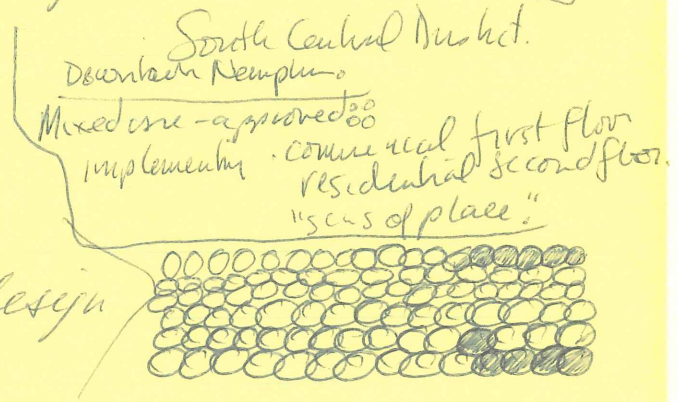 South Central District.
Downtown Memphis.
Mixed use - approved
implementing · commercial first floor
residential second floor.
"sens of place".
design